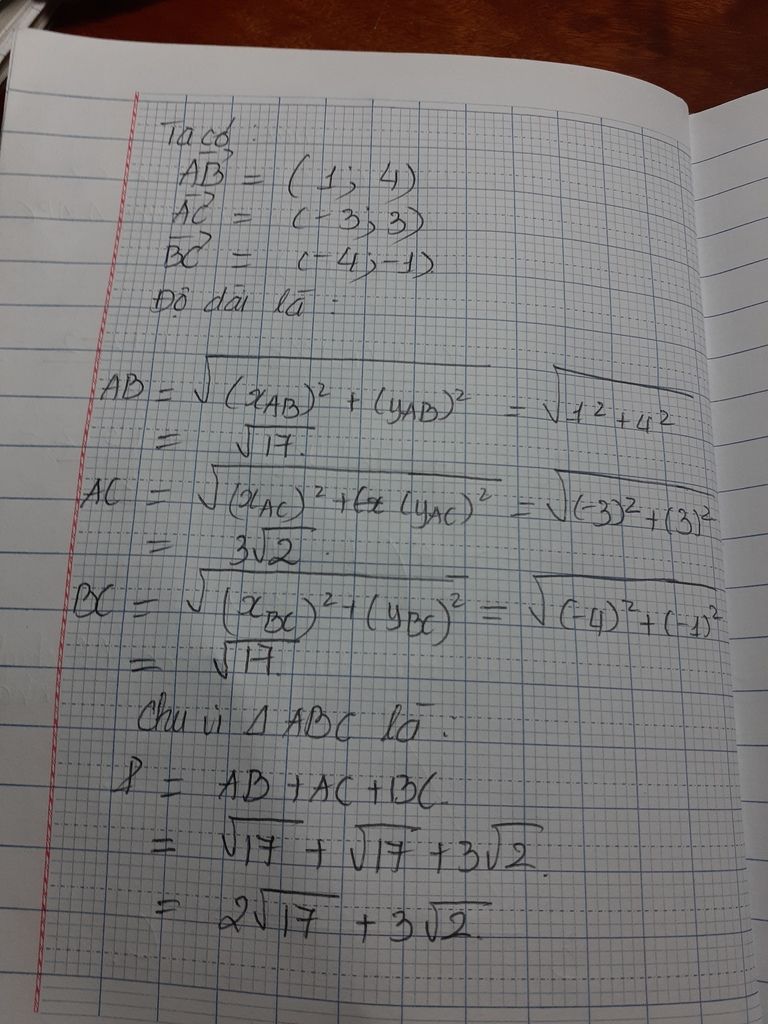 Ta có :
$\overrightarrow{AB}$ = ( 1 ; 4 )
$\overrightarrow{AC}$ = (-3 ; 3)
$\overrightarrow{BC}$ = (-4 ; -1)
Độ dài là :
AB = $\sqrt{(x_{AB})^2 + (y_{AB})^2}$ = $\sqrt{1^2 + 4^2}$
= $\sqrt{17}$.
AC = $\sqrt{(x_{AC})^2 + (x (y_{AC})^2}$ = $\sqrt{(-3)^2 + (3)^2}$
= $3\sqrt{2}$.
BC = $\sqrt{(x_{BC})^2 + (y_{BC})^2}$ = $\sqrt{(-4)^2 + (-1)^2}$
= $\sqrt{17}$.
Chu vi Δ ABC là :
P = AB + AC + BC.
= $\sqrt{17}$ + $\sqrt{17}$ + $3\sqrt{2}$.
= $2\sqrt{17}$ + $3\sqrt{2}$.